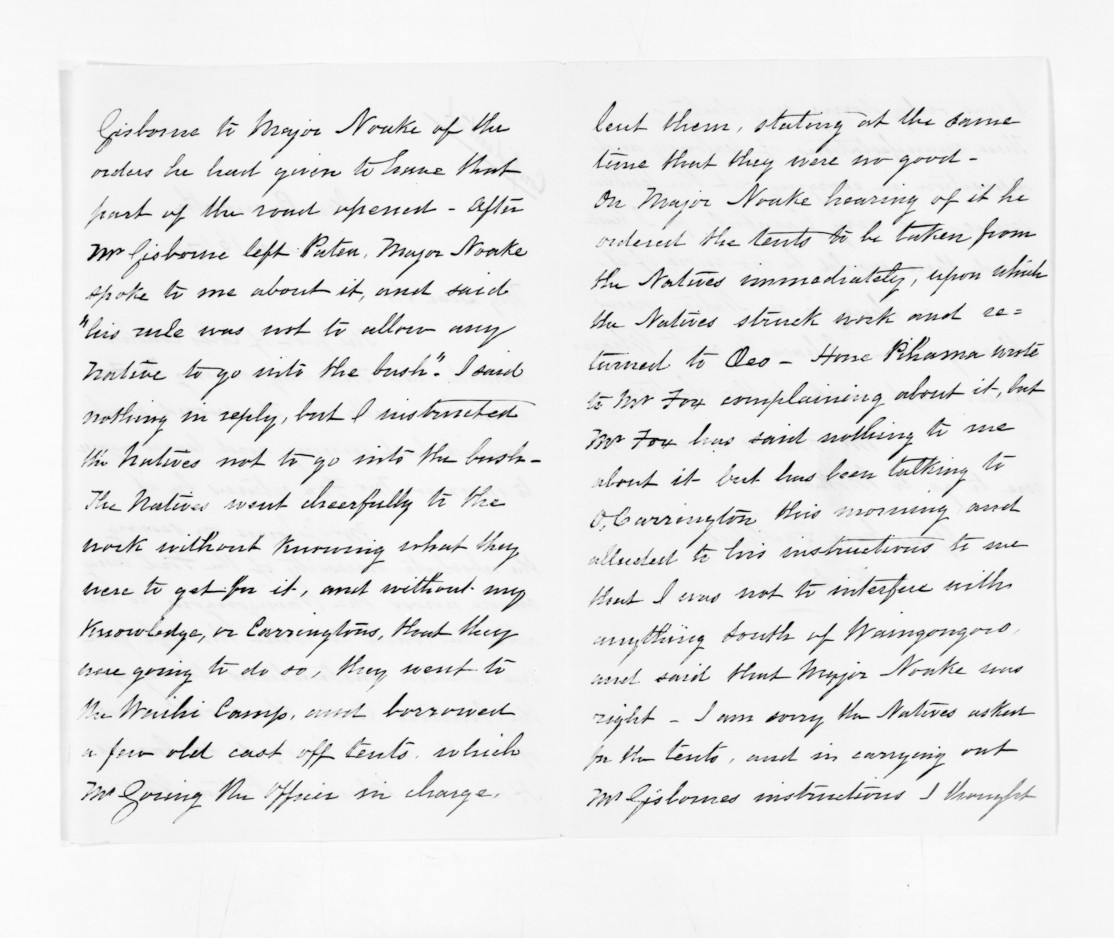 Gisborne to Major Noake of the
orders he had given to have that
part of the road opened - After
Mr Gisborne left Patea, Major Noake
spoke to me about it, and said
"his rule was not to allow any
Native to go into the bush". I said
nothing in reply, but I instructed
the Natives not to go into the bush -
The Natives went cheerfully to the
work without knowing what they
were to get for it, and without my
knowledge, or Carringtons, that they
were going to do so, they went to
the Waihi Camp, and borrowed
a few old cast off tents, which
Mr Going the Officer in charge,
lent them, stating at the same
time that they were no good -
On Major Noake hearing of it he
ordered the tents to be taken from
the Natives immediately, upon which
the Natives struck work and re=
turned to Oeo - Hone Pihama wrote
to Mr Fox complaining about it, but
Mr Fox has said nothing to me
about it but has been talking to
O, Carrington this morning and
alluded to his instructions to me
that I was not to interfere with
anything South of Waingongoro,
and said that Major Noake was
right - I am sorry the Natives asked
for the tents, and in carrying out
Mr Gisbornes instructions I thought